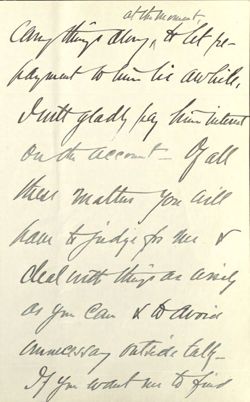 at the moment
carry things along, & let re-
payment to him lie awhile,
I will gladly pay him interest
on the account - Of all
these matters you will
have to judge for me &
deal with things as wisely
as you can & to avoid
unnecessary outside talk -
If you want me to find